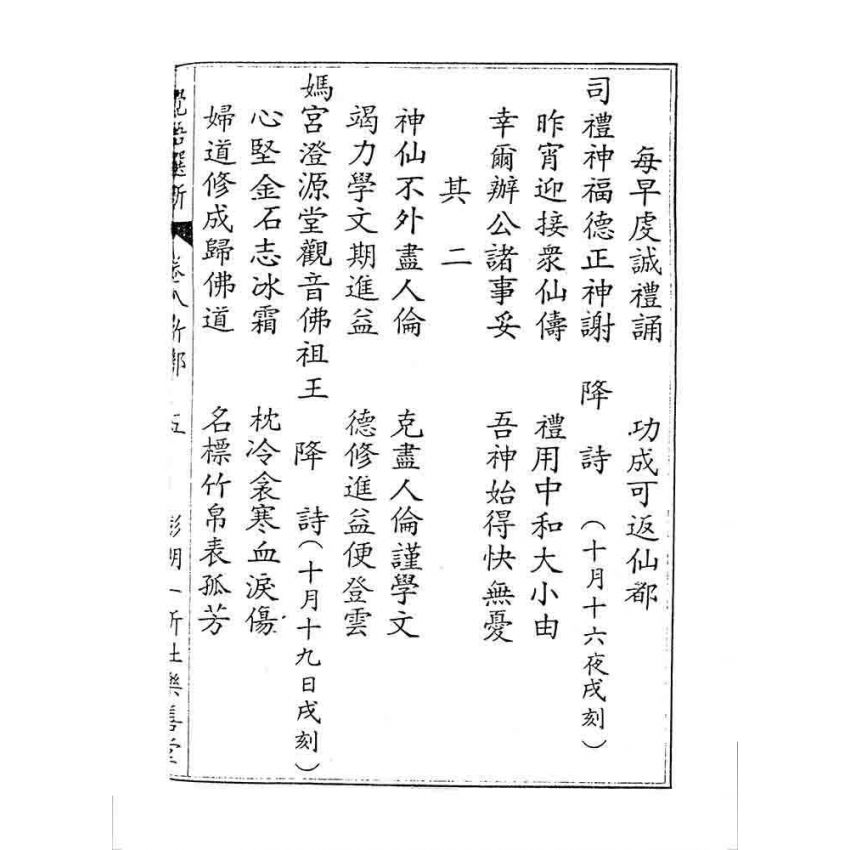 每早虔誠禮誦　功成可返仙都
司禮神福德正神謝　降　詩　(十月十六夜戌刻)
昨宵迎接衆仙儔　禮用中和大小由
幸爾辦公諸事妥　吾神始得快無憂
其二
神仙不外盡人倫　克盡人倫謹學文
竭力學文期進益　德修進益便登雲
媽宮澄源堂觀音佛祖王　降　詩(十月十九日戌刻)
心堅金石志冰霜　枕冷衾寒血淚傷
婦道修成歸佛道　名標竹帛表孤芳
覺悟選新　卷八新部　五　彭湖一新社樂善堂